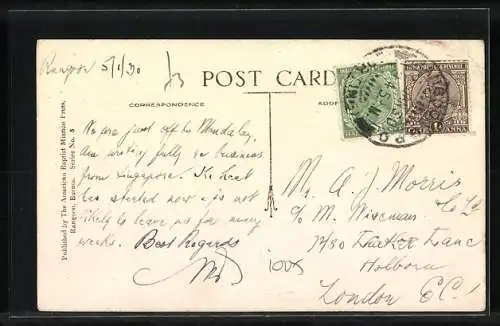 Rangoon 5/1/30
POST CARD
CORRESPONDENCE
We are just off to Mandalay.
Am writing fully re business
from Singapore. The heat
has started now & is not
likely to leave us for many
weeks. Best Regards
Mr. A. J. Morris
c/o M. Wiseman & Co Ltd
Lane
Holborn
London E.C.1
1005
Published by The American Baptist Mission Press,
Rangoon, Burma. Series No. 8